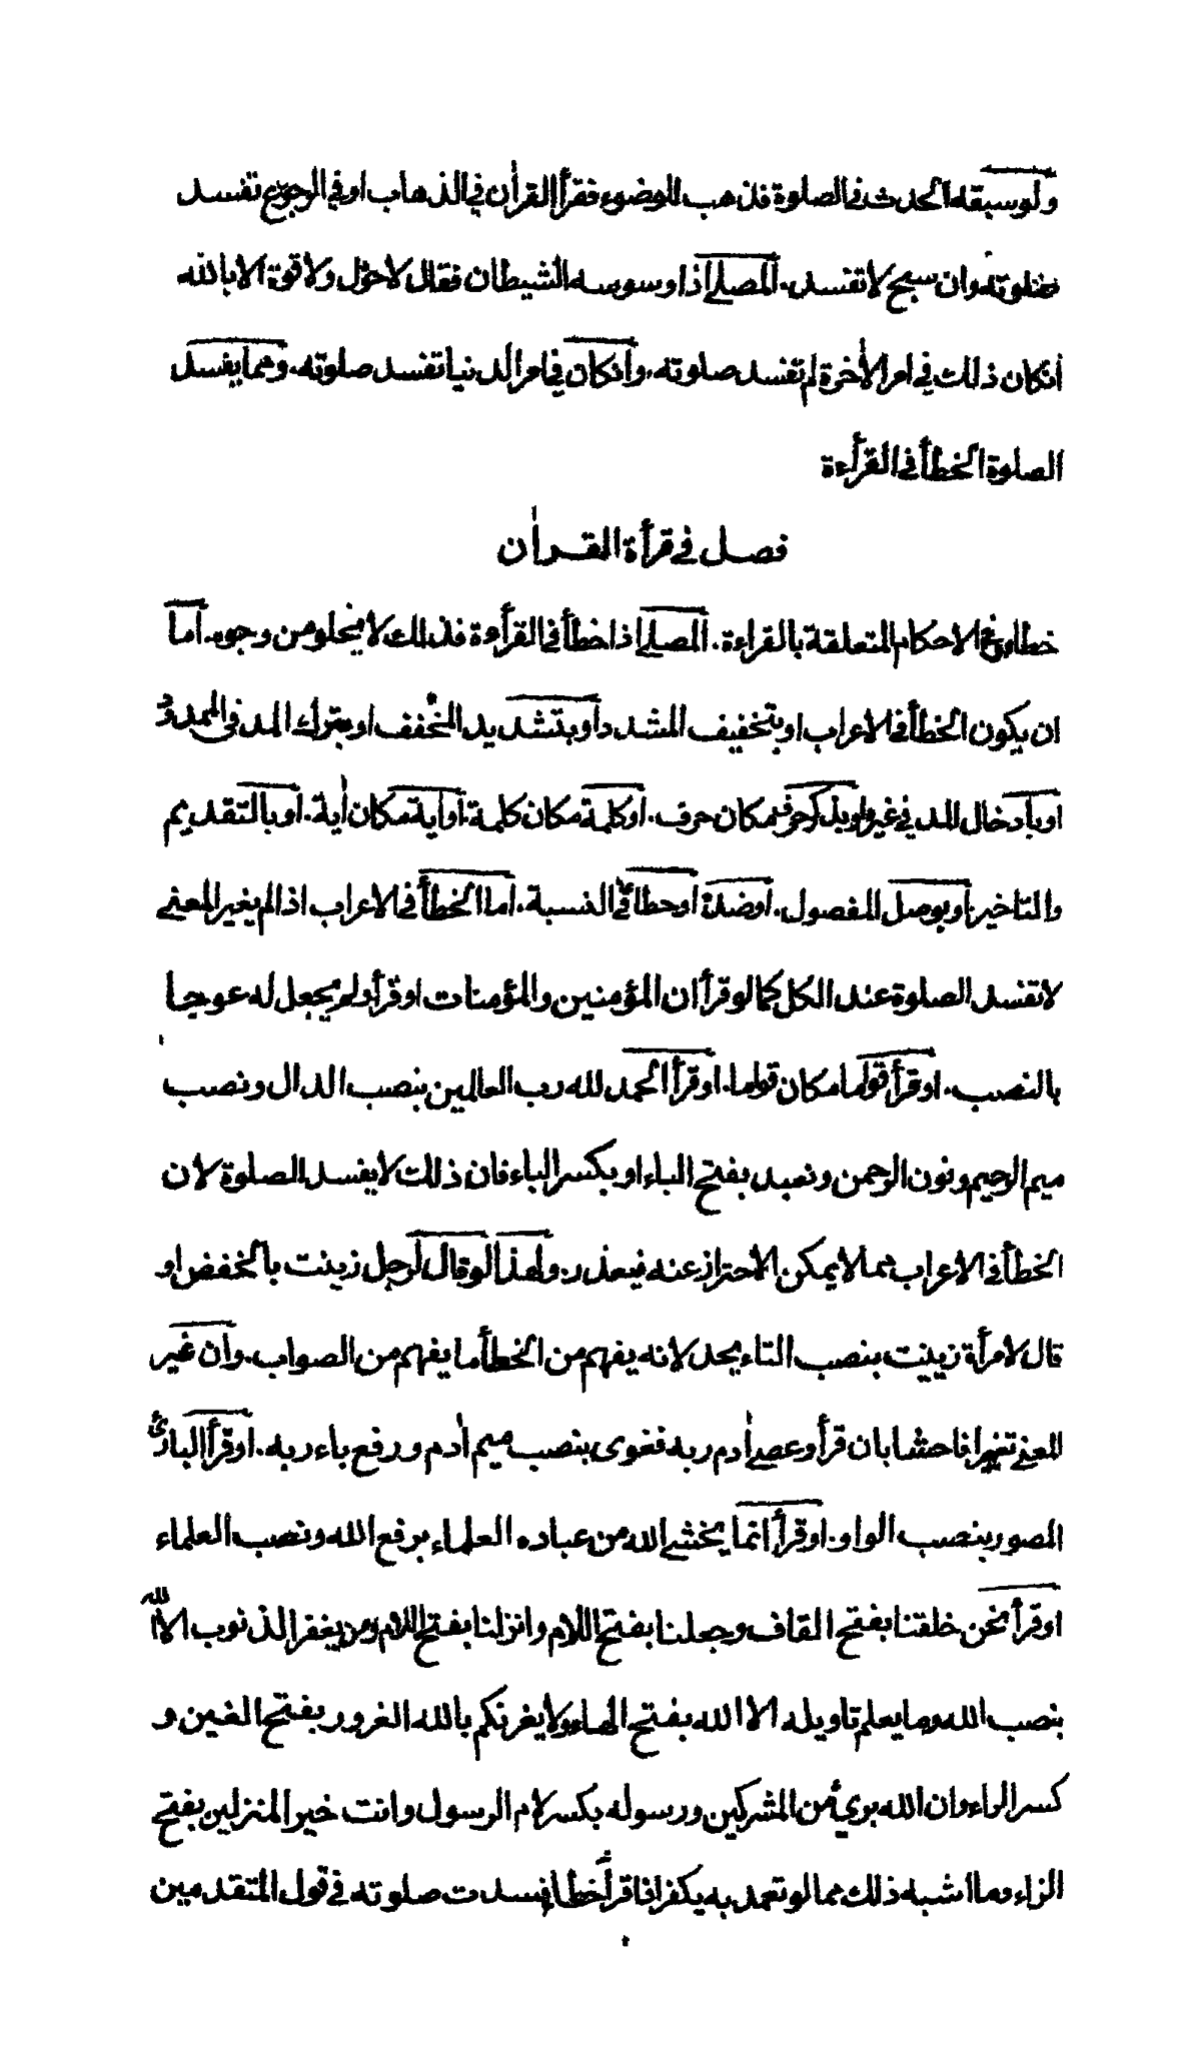 ولو سبقه الحدث في الصلوة فذهب للوضوء فقرأ القرأن في الذهاب او في الرجوع تفسد
صلوته وان سبح لا تفسد. المصلي اذا وسوسه الشيطان فقال لا حول ولا قوة الا بالله
انكان ذلك في امر الأخرة لم تفسد صلوته. وانكان في امر الدنيا تفسد صلوته. ومما يفسد
الصلوة الخطأ في القرأءة
فصل في قرأة القرأن
خطا وفي الاحكام المتعلقة بالقراءة. المصلي اذا خطأ في القرأءة فذلك لا يخلو من وجوه. اما
ان يكون الخطأ في الاعراب او بتخفيف المشدد او بتشديد المخفف او بترك المد في الممدود
او بادخال المد في غيره او بذكر حرف مكان حرف. او كلمة مكان كلمة. او اية مكان أية. او بالتقديم
والتاخير. او بوصل المفصول. او ضده او خطائ في النسبة. اما الخطأ في الاعراب اذا لم يغير المعنى
لا تفسد الصلوة عند الكل كما لو قرأ ان المؤمنين والمؤمنات او قرأ ولم يجعل له عوجا
بالنصب. او قرأ قواما مكان قواما. او قرأ الحمد لله رب العالمين بنصب الدال ونصب
ميم الرحيم ونون الرحمن ونعبد بفتح الباء او بكسر الباء فان ذلك لا يفسد الصلوة لان
الخطأ في الاعراب مما لا يمكن الاحتراز عنه فيعذر. ولهذا لو قال لرجل زينت بالخفض او
قال لامرأة زنيت بنصب التاء يحد لانه يفهم من الخطأ ما يفهم من الصواب. وان غير
المعنى تغيرا فاحشا بان قرأ وعصى أدم ربه فغوى بنصب ميم أدم ورفع باء ربه. او قرأ البارئ
المصور بنصب الواو. او قرأ انما يخشى الله من عباده العلماء برفع الله ونصب العلماء
او قرأ نحن خلقنا بفتح القاف وجعلنا بفتح اللام وانزلنا بفتح اللام ومن يغفر الذنوب الا الله
بنصب الله وما يعلم تاويله الا الله بفتح الهاء ولا يغرنكم بالله الغرور بفتح الغين و
كسر الراء وان الله بريء من المشركين ورسوله بكسر لام الرسول وانت خير المنزلين بفتح
الزاء وما اشبه ذلك مما لو تعمد به يكفر اذا قرأ خطأ فسدت صلوته في قول المتقدمين